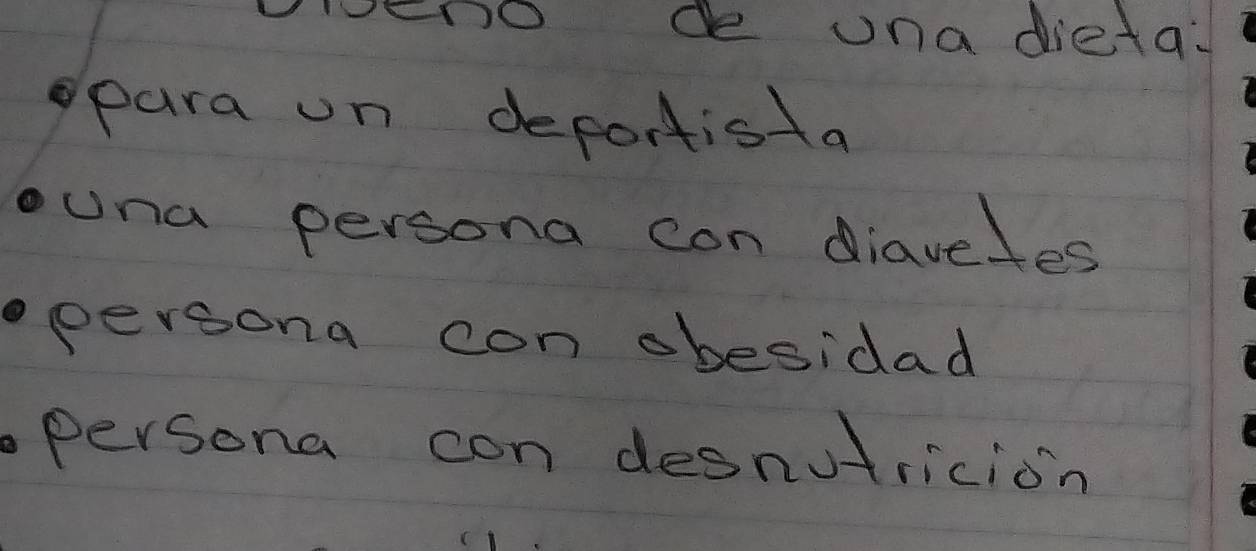 Diseno de una dieta:
•para un deportista
•una persona con diavetes
•persona con obesidad
•persona con desnutrición